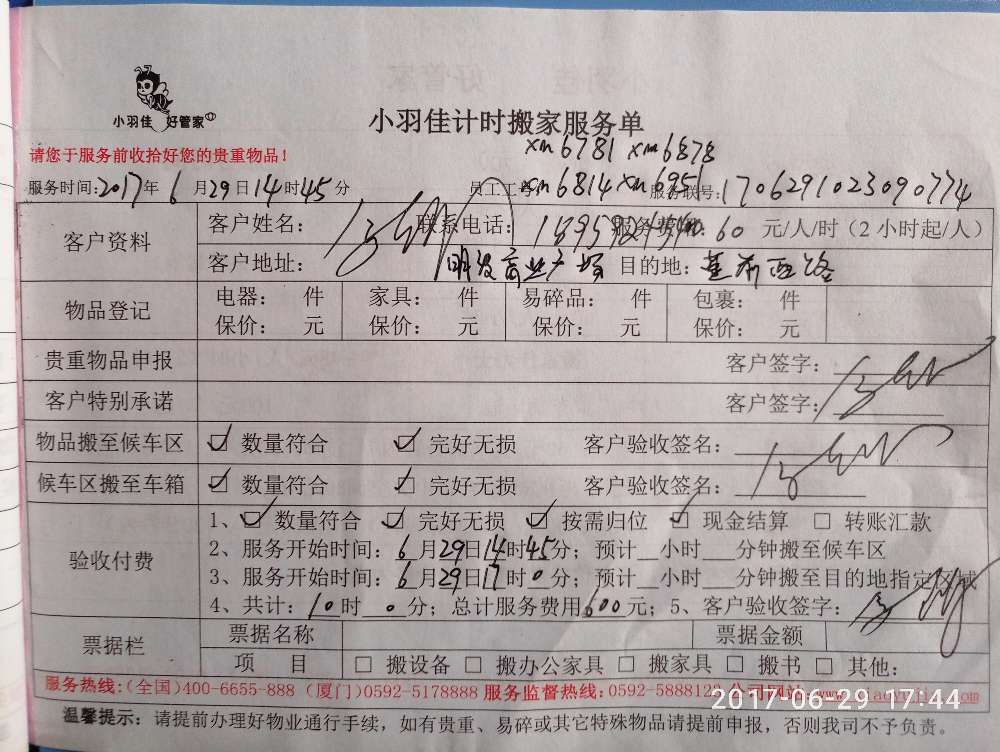 小羽佳 好管家
小羽佳计时搬家服务单
xm6781 xm6878
请您于服务前收拾好您的贵重物品！
服务时间:2017年 6月29日14时45分 员工工号 xm6814 xm6951 服务联号:1706291023090774
客户资料 客户姓名： 联系电话： 服务费 60 元/人/时（2小时起/人）
客户地址： 明发商业广场 目的地：莲前西路
物品登记 电器： 件 家具： 件 易碎品： 件 包裹： 件
保价： 元 保价： 元 保价： 元 保价： 元
贵重物品申报 客户签字：
客户特别承诺 客户签字：
物品搬至候车区 ☑ 数量符合 ☑ 完好无损 客户验收签名：
候车区搬至车箱 ☑ 数量符合 ☑ 完好无损 客户验收签名：
验收付费 1、☑ 数量符合 ☑ 完好无损 ☑ 按需归位 ☑ 现金结算 □ 转账汇款
2、服务开始时间：6月29日14时45分；预计__小时___分钟搬至候车区
3、服务开始时间：6月29日17时0分；预计__小时___分钟搬至目的地指定区域
4、共计：10时 0分；总计服务费用600元；5、客户验收签字：
票据栏 票据名称 票据金额
项 目 □ 搬设备 □ 搬办公家具 □ 搬家具 □ 搬书 □ 其他：
服务热线:(全国)400-6655-888 (厦门)0592-5178888 服务监督热线：0592-588812 公司网站:www.
2017-06-29 17:44
温馨提示：请提前办理好物业通行手续，如有贵重、易碎或其它特殊物品请提前申报，否则我司不予负责。